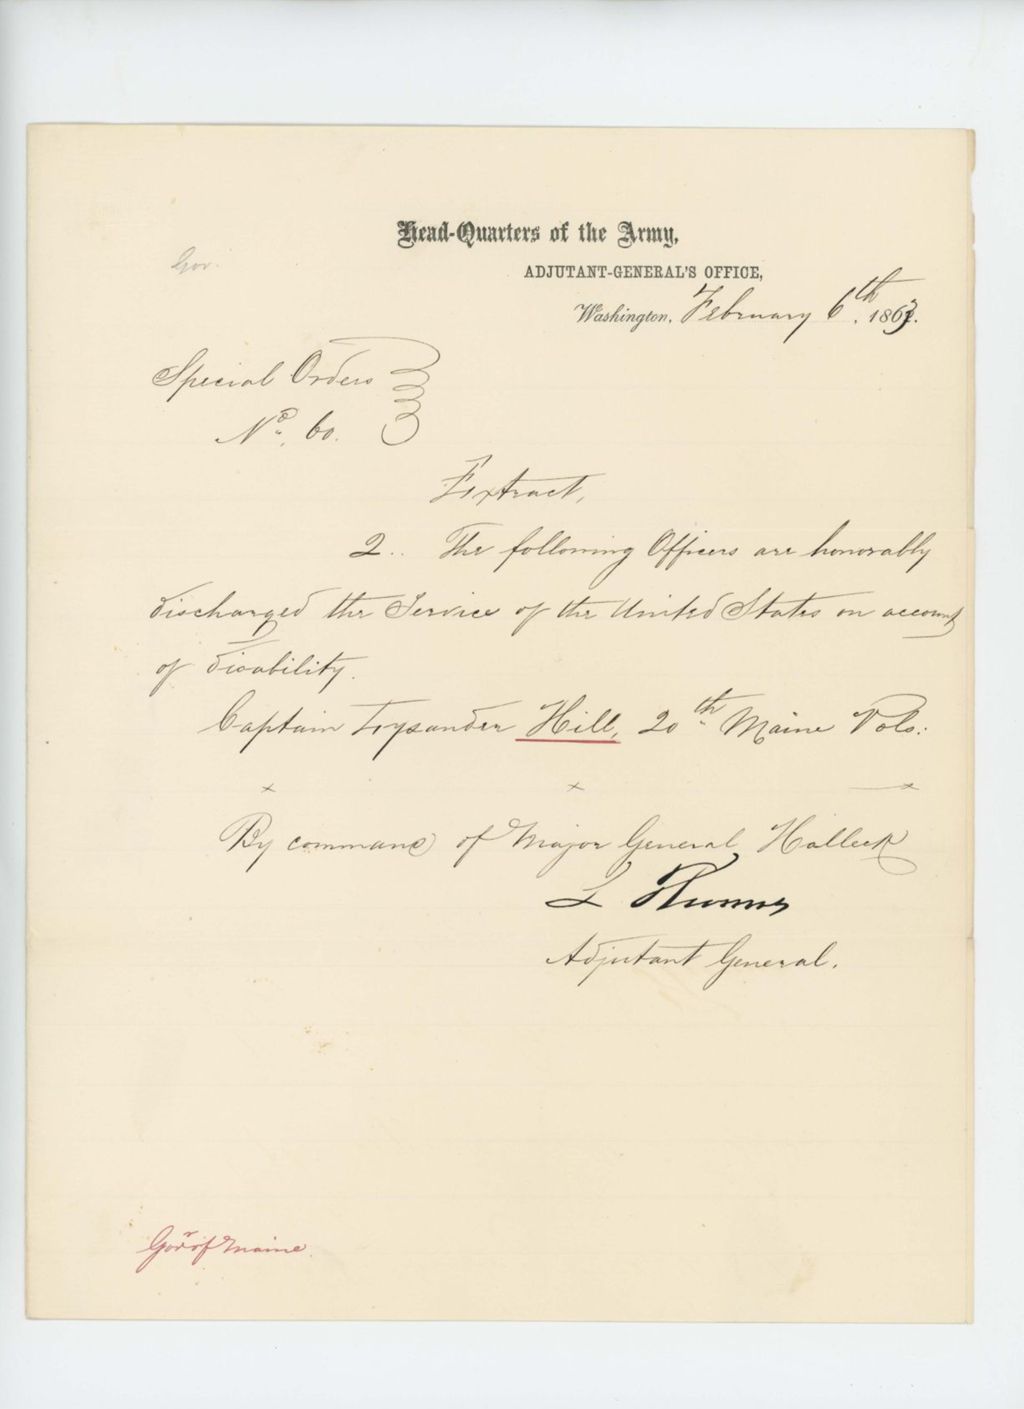 Gov.
Head-Quarters of the Army,
ADJUTANT-GENERAL'S OFFICE,
Washington, February 6th, 1863.
Special Orders
No. 60.
Extract,
2.. The following Officers are honorably
discharged the Service of the United States on account
of disability.
Captain Lysander Hill, 20th Maine Vols:
x x x
By command of Major General Halleck
L Thomas
Adjutant General.
Govr of Maine.